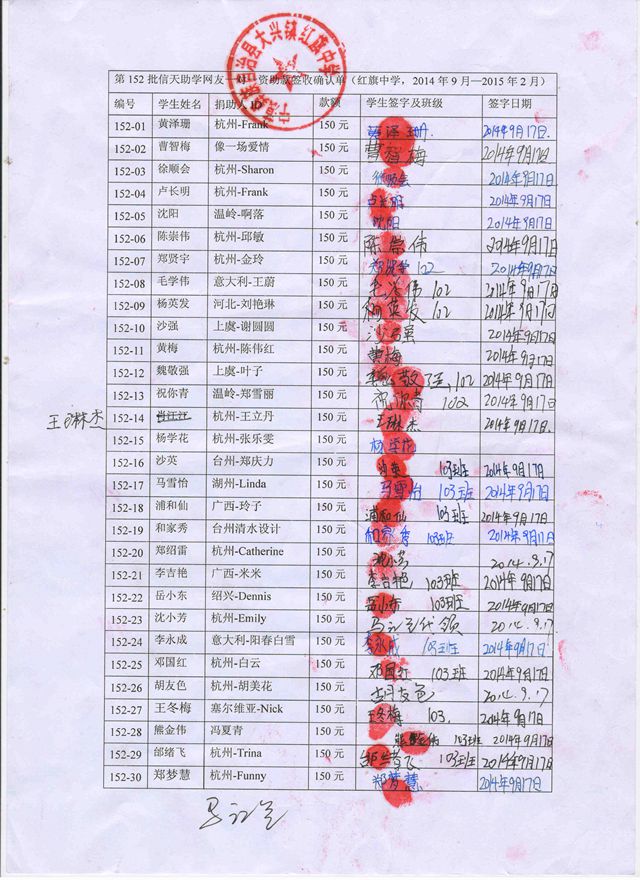 自治县大兴镇红旗中学
第 152 批信天助学网友一对一资助款签收确认单（红旗中学，2014 年 9 月—2015 年 2 月）
编号 学生姓名 捐助人 ID 款额 学生签字及班级 签字日期
152-01 黄泽珊 杭州-Frank 150 元 黄泽珊 2014年9月17日
152-02 曹智梅 像一场爱情 150 元 曹智梅 2014年9月17日
152-03 徐顺会 杭州-Sharon 150 元 徐顺会 2014年9月17日
152-04 卢长明 杭州-Frank 150 元 卢长明 2014年9月17日
152-05 沈阳 温岭-啊落 150 元 沈阳 2014年9月17日
152-06 陈崇伟 杭州-邱敏 150 元 陈崇伟 2014年9月17日
152-07 郑贤宇 杭州-金玲 150 元 102 2014年9月17日
152-08 毛学伟 意大利-王蔚 150 元 毛学伟 102 2014年9月17日
152-09 杨英发 河北-刘艳琳 150 元 杨英发 102 2014年9月17日
152-10 沙强 上虞-谢圆圆 150 元 2014年9月17日
152-11 黄梅 杭州-陈伟红 150 元 黄梅 2014年9月17日
152-12 魏敬强 上虞-叶子 150 元 102 2014年9月17日
152-13 祝你青 温岭-郑雪丽 150 元 祝你青 102 2014年9月17日
王琳杰 152-14 杭州-王立丹 150 元 王琳杰 2014年9月17日
152-15 杨学花 杭州-张乐雯 150 元 杨学花
152-16 沙英 台州-郑庆力 150 元 沙英 103班 2014年9月17日
152-17 马雪怡 湖州-Linda 150 元 马雪怡 103班 2014年9月17日
152-18 浦和仙 广西-玲子 150 元 浦和仙 103班 2014年9月17日
152-19 和家秀 台州清水设计 150 元 和家秀 103班 2014年9月17日
152-20 郑绍雷 杭州-Catherine 150 元 2014.9.17
152-21 李吉艳 广西-米米 150 元 李吉艳 103班 2014年9月17日
152-22 岳小东 绍兴-Dennis 150 元 岳小东 103班 2014年9月17日
152-23 沈小芳 杭州-Emily 150 元 代领 2014.9.17
152-24 李永成 意大利-阳春白雪 150 元 李永成 103班 2014年9月17日
152-25 邓国红 杭州-白云 150 元 邓国红 103班 2014年9月17日
152-26 胡友色 杭州-胡美花 150 元 胡友色 2014.9.17
152-27 王冬梅 塞尔维亚-Nick 150 元 王冬梅 103. 2014年9月17日
152-28 熊金伟 冯夏青 150 元 103班 2014年9月17日
152-29 邰绪飞 杭州-Trina 150 元 103班 2014年9月17日
152-30 郑梦慧 杭州-Funny 150 元 郑梦慧 2014年9月17日